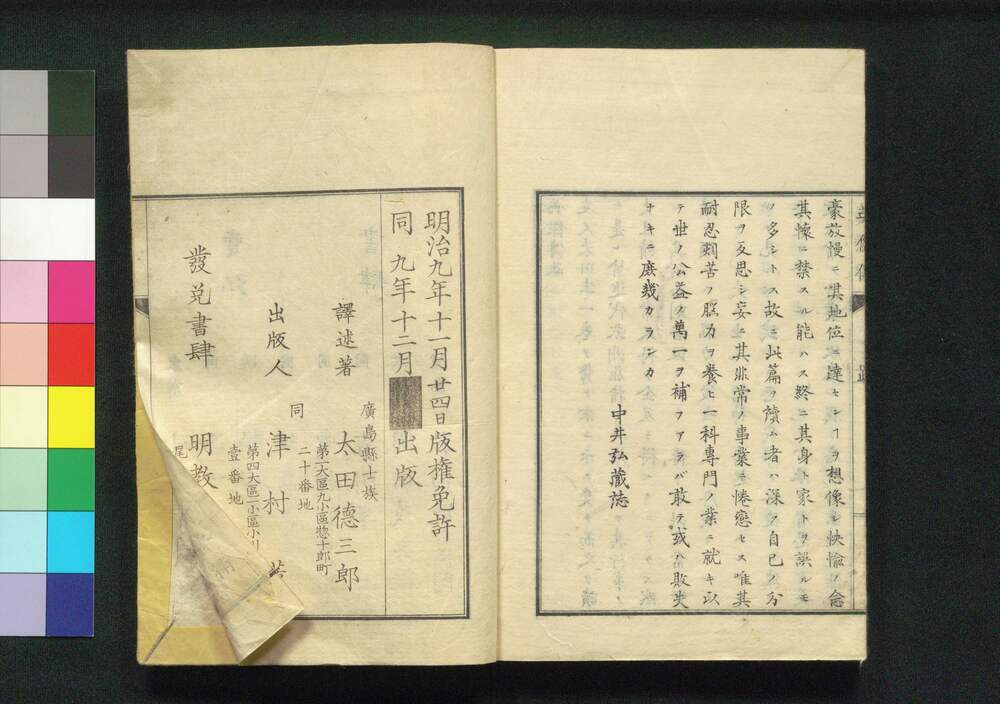 豪放慢ニ其地位ニ達セシヿヲ想像シ快愉ノ念
其懐ニ禁スル能ハス終ニ其身ト家トヲ誤ルモ
ノ多シトス故ニ此篇ヲ讀ム者ハ深ク自已ノ分
限ヲ反思シ妄ニ其非常ノ事業ヲ惓戀セス唯其
耐忍刻苦ノ膓力ヲ養ヒ一科專門ノ業ニ就キ以
テ世ノ公益ノ萬一ヲ補フアラバ敢テ或ハ敗失
ナキニ庶幾カランカ
中井弘藏誌
明治九年十一月廿四日版權免許
同 九年十二月 出版
廣島縣士族
譯述著 太田德三郎
第二大區九小區惣十郎町
二十番地
同
出版人 津村
第四大區一小區小川
壹番地
發兌書肆 明教
尾